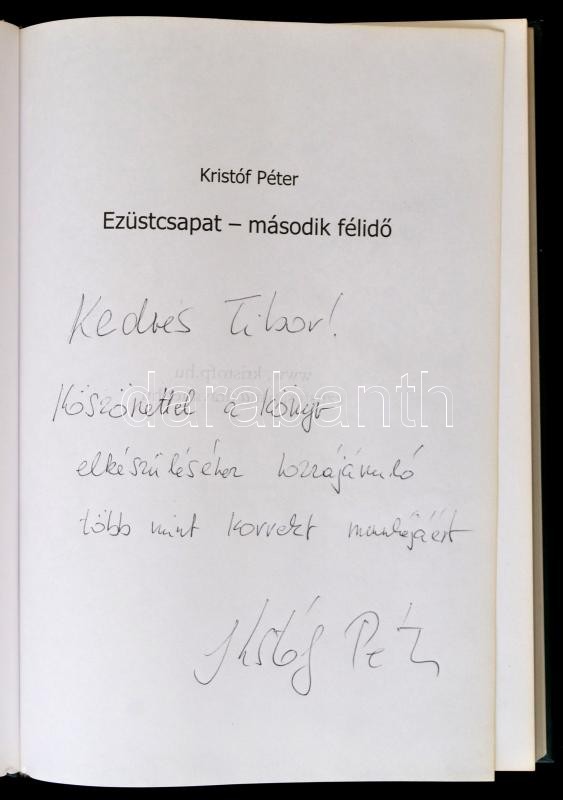 Kristóf Péter
Ezüstcsapat – második félidő
Kedves Tibor!
www.kristofp.hu
darabanth
Köszönettel a könyv
elkészüléséhez hozzájáruló
több mint korrekt munkájáért
Kristóf Péter